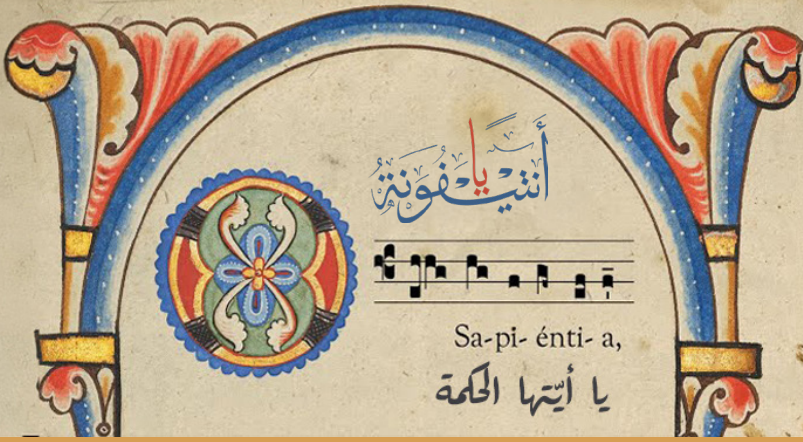 أنتيفونة يا
O Sa-pi- énti- a,
يا أيّتها الحكمة